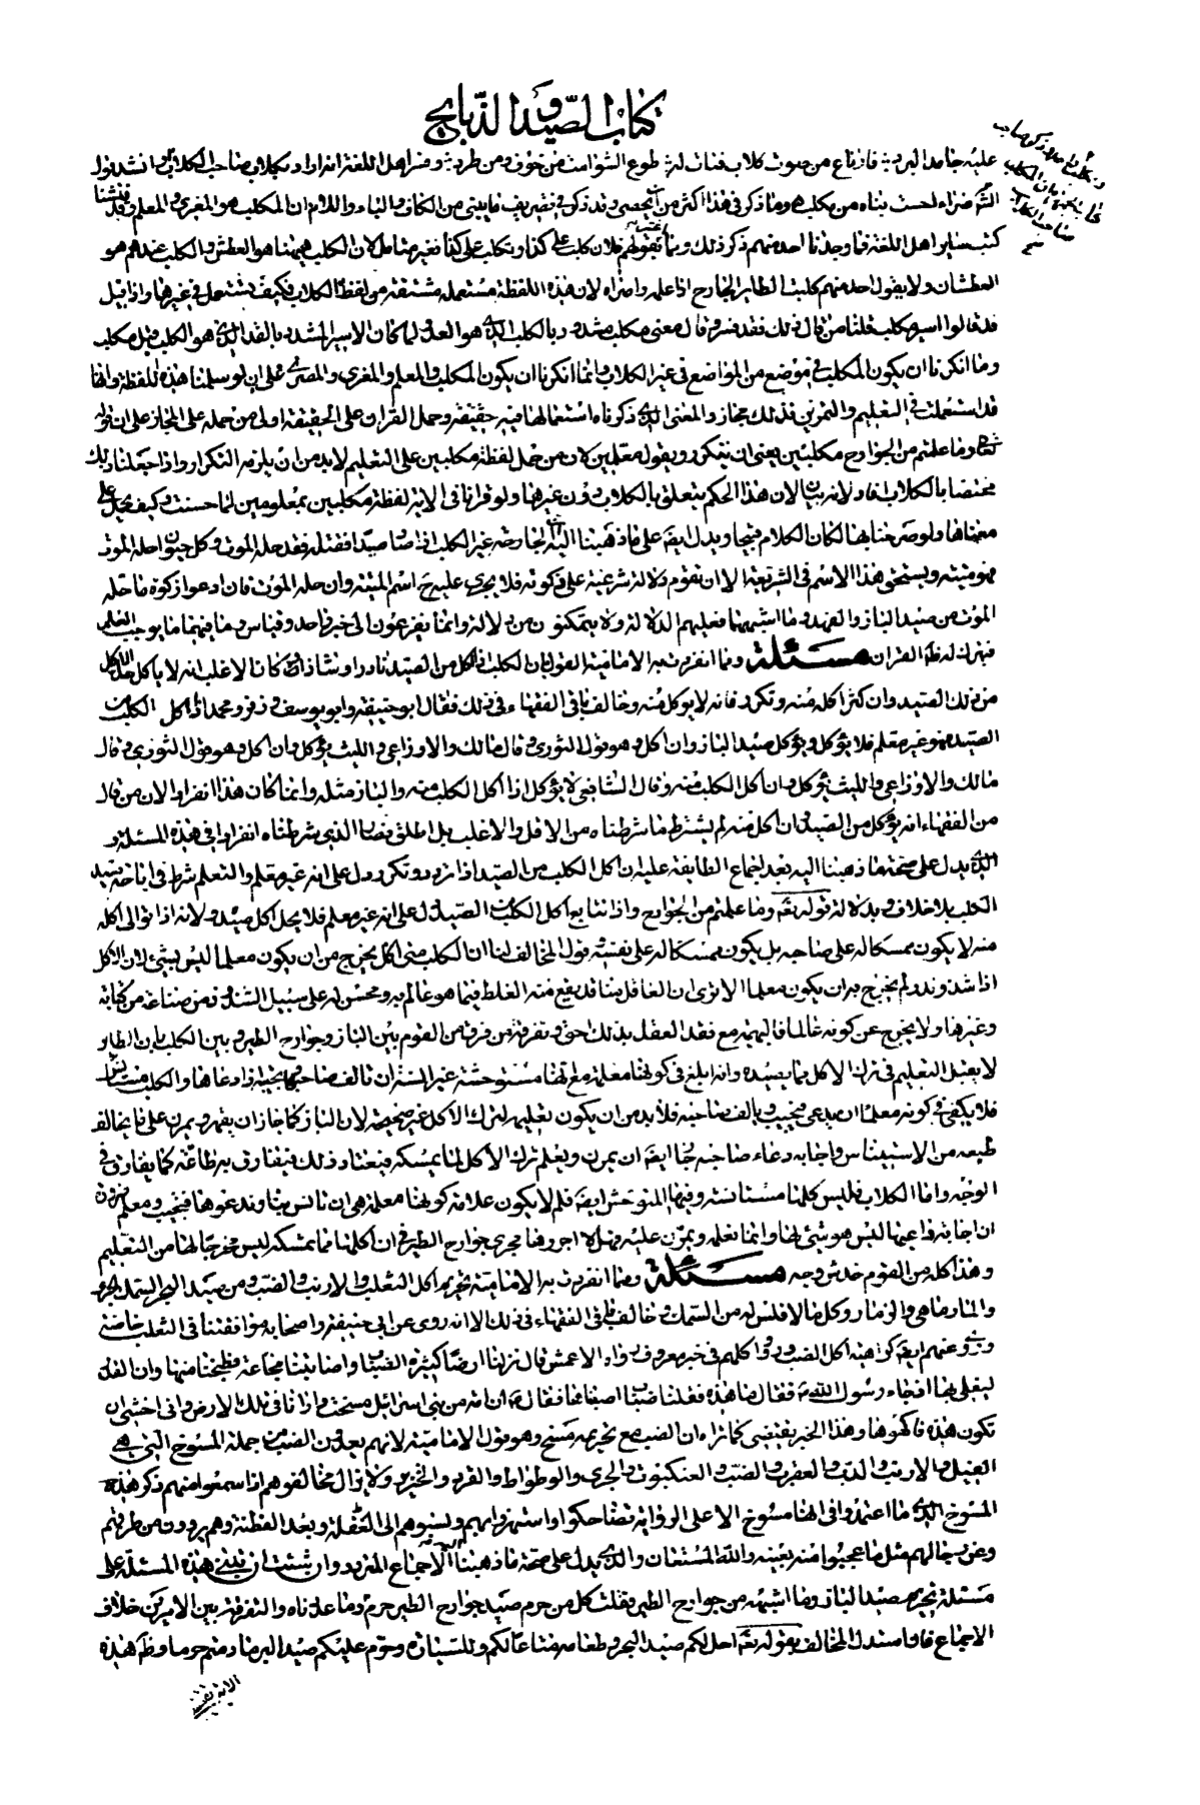 كتاب الصيد والذبايح
عليه جامد البرد فارتاع من صوت كلاب فبات له طوع الشوامت من خوف ومن صرد وفسر اهل اللغة انه اراد بكلاب صاحب الكلاب وانشد قول
الشاعر ضراء احست نباه من مكلب وما ذكر في هذا اكثر من ان يحصى وقد ذكر في تصريف ما يبنى من الكاف واللام والباء ان المكلب هو المضري والمعلم وقد فتشنا
كتب ساير اهل اللغة فما وجدنا احدا منهم ذكر ذلك وانما يقولهم فلان كلب على كذا وتكلب على كذا بغير هذا لان الكلب هيهنا هو العطش والكلب عندهم هو
العطشان ولا يقول احد منهم كلبت الطاير الجارح اذا علمه واضراه لان هذه اللفظة مستعملة مشتقة من لفظ الكلاب فكيف تستعمل في غيرها واذا قيل
قد قالوا اسير مكلب قلنا من قال ذلك فقد فسره وقال معنى مكلب مشدود بالكلب الذي هو القد ولما كان الاسير المشدود بالقد الذي هو الكلب قيل مكلب
وما انكرنا ان يكون المكلب في موضع من المواضع في غير الكلاب وانما انكرنا ان يكون المكلب والمعلم والمغري والمضري على ان لو سلمنا هذه اللفظة وانها
قد استعملت في التعليم والتمرين فذلك مجاز والمعنى الذي ذكرناه استعمالها فيه حقيقة وحمل القران على الحقيقة اولى من حمله على المجاز على ان قوله
تعالى وما علمتم من الجوارح مكلبين يعني ان يتكرر ويقول معلمين لان من حمل لفظة مكلبين على التعليم لا بد من ان يلزمه التكرار واذا جعلنا ذلك
مختصا بالكلاب افاد ولانه بيان لان هذا الحكم يتعلق بالكلاب دون غيرها ولو قرانا في الاية لفظة مكلبين بمعلومين لما حسنت وكيف يحمل على
معناها ولو صرحنا بها لكان الكلام قبيحا ويدل ايضا على ما ذهبنا اليه ان الجارحة غير الكلب اذا صاد صيدا فقتله فقد حله الموت وكل حيوان احله الموت
فهو ميتة ويستحق هذا الاسم في الشريعة الا ان تقوم دلالة شرعية على ذكوته فلا يجري عليه ح اسم الميتة وان حله الموت فان ادعوا ذكوة ما حله
الموت من صيد الباز والفهد وما اشبههما فعليهم الدلالة ولا يتمكنون من دلالة وانما يفزعون الى خبر واحد وقياس وما فيهما ما يوجب العلم
فيترك له ظاهر القران مسئلة ومما انفردت به الامامية القول بان الكلب اذا اكل من الصيد نادرا وشاذا وكان الاغلب انه لا ياكل حل الاكل
من ذلك الصيد وان كثر اكله منه وتكرر فانه لا يوكل منه وخالف باقي الفقهاء في ذلك فقال ابو حنيفة وابو يوسف وزفر ومحمد اذا اكل الكلب من
الصيد فهو غير معلم فلا يؤكل ويؤكل صيد الباز وان اكل وهو قول الثوري وقال مالك والاوزاعي والليث يؤكل وان اكل وهو قول الثوري وقال
مالك والاوزاعي والليث يؤكل وان اكل الكلب منه وقال الشافعي لا يؤكل اذا اكل الكلب منه والباز مثله وانما كان هذا انفرادا لان من قال
من الفقهاء انه يؤكل من الصيد وان اكل منه لم يشترط ما شرطناه من الاقل والاغلب بل اطلق فصار الذي شرطناه انفرادا في هذه المسئلة و
الذي يدل على صحة ما ذهبنا اليه بعد اجماع الطايفة عليه ان اكل الكلب من الصيد اذا تردد وتكرر دل على انه غير معلم والتعلم شرط في اباحة صيد
الكلب بلا خلاف وبدلالة قوله تعالى وما علمتم من الجوارح واذا تتابع اكل الكلب من الصيد دل على انه غير معلم فلا يحل اكل صيده ولانه اذا توالى اكله
منه لا يكون ممسكا له على صاحبه بل يكون ممسكا له على نفسه وقول المخالف لنا ان الكلب متى اكل يخرج من ان يكون معلما ليس بشيء لان الاكل
اذا شذ وندر لم يخرج به من ان يكون معلما الا ترى ان العاقل منا قد يقع منه الغلط فيما هو عالم به ومحسن له على سبيل الشذوذ من صناعة من كتابة
وغيرها ولا يخرج عن كونه عالما فالبهيمة مع فقد العقل بذلك احق وتفرقة من فرق من القوم بين الباز وجوارح الطير وبين الكلب بان الطاير
لا يقبل التعليم في ترك الاكل مما يصيده وانه ابلغ في كونها معلمة مع انها مستوحشة غير انسة ان تالف صاحبها فتجيبه اذا دعاها والكلب مستانس
فلا يكفي في كونه معلما ان يدعى فيجيب ويالف صاحبه فلا بد من ان يكون تعليمه ترك الاكل غير صحيحة لان الباز كما جاز ان يقهر ويمرن على ما يخالف
طبعه من الاستيناس واجابه دعاء صاحبه جاز ايضا ان يمرن ويعلم ترك الاكل لما يمسكه فيعتاد ذلك فيفارق به طباعه كما يفارق في
الوجه واما الكلاب فليس كلها مستانسة وفيها المتوحش ايضا فلم لا يكون علامة كونها معلمة هي ان تانس بنا وندعوها فتجيب ومعلوم ضرورة
ان اجابة داعيها ليس هو شئ لها وانما تعلمه وتمرن عليه فهلا اجروها مجرى جوارح الطير في ان اكلها مما تمسكه ليس مخرجا لها من التعليم
وهذا كله من القوم خدش وجه مسئلة ومما انفردت به الامامية تحريم اكل الثعلب والارنب والضب ومن صيد البحر السمك الجري
والمارماهي والزمار وكل ما لا فلس له من السمك وخالف باقي الفقهاء في ذلك الا انه روى عن ابي حنيفة واصحابه موافقتنا في الثعلب خاصة
وروي عنهم ايضا كراهية اكل الضب ورووا كلهم في خبر معروف رواه الاعمش قال نزلنا ارضا كثيرة الضباب واصابتنا مجاعة فطبخنا منها وان القدور
لتغلي بها اذ جاء رسول الله ص فقال ما هذه فقلنا ضباب اصبناها فقال ان امة من بني اسرائيل مسخت دوابا في تلك الارض واني اخشى ان
تكون هذه فاكفوها وهذا الخبر يقتضي كما تراه ان الضب مع تحريمه مسخ وهو قول الامامية لانهم يعدون الضب من جملة المسوخ التي هي
الفيل والارنب والدب والعقرب والضب والعنكبوت والجري والوطواط والقرد والخنزير ولا يزال مخالفوهم اذا سمعوا منهم ذكر هذه
المسوخ التي ما اعتمدوا في انها مسوخ الا على الرواية تضاحكوا واستهزؤا بهم ونسبوهم الى الغفلة وبعد الفطنة وهم يروون من طرقهم
وعن رجالهم مثل ما عجبوا منه بعينه والله المستعان والذي يدل على صحة ما ذهبنا اليه الاجماع المتردد وان شئت ان تبني هذه المسئلة على
مسئلة تحريم صيد الباز وما اشبهه من جوارح الطير وقلت كل من حرم صيد جوارح الطير حرم ما عددناه والتفرقة بين الامرين خلاف
الاجماع فان استدل المخالف بقوله تعالى احل لكم صيد البحر وطعامه متاعا لكم وللسيارة وحرم عليكم صيد البر ما دمتم حرما وظاهر هذه
الاية يقتضي